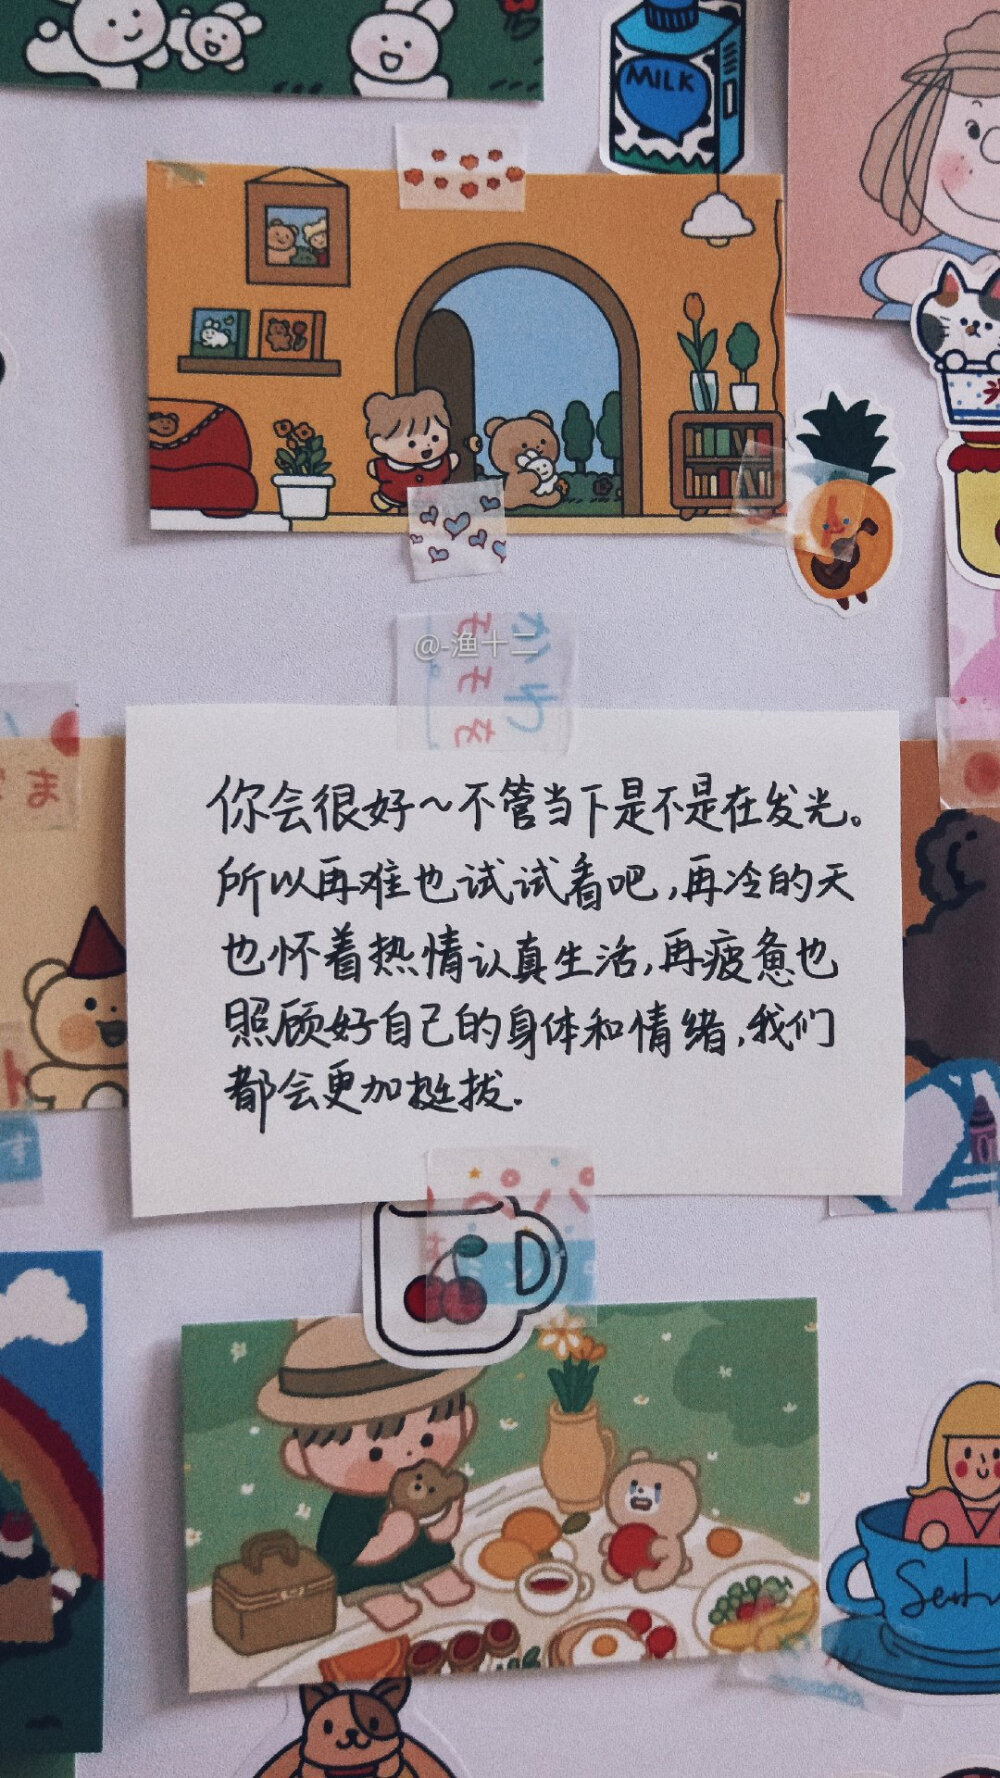 MILK
@-渔十二
你会很好~不管当下是不是在发光。
所以再难也试试看吧,再冷的天
也怀着热情认真生活,再疲惫也
照顾好自己的身体和情绪,我们
都会更加挺拔.